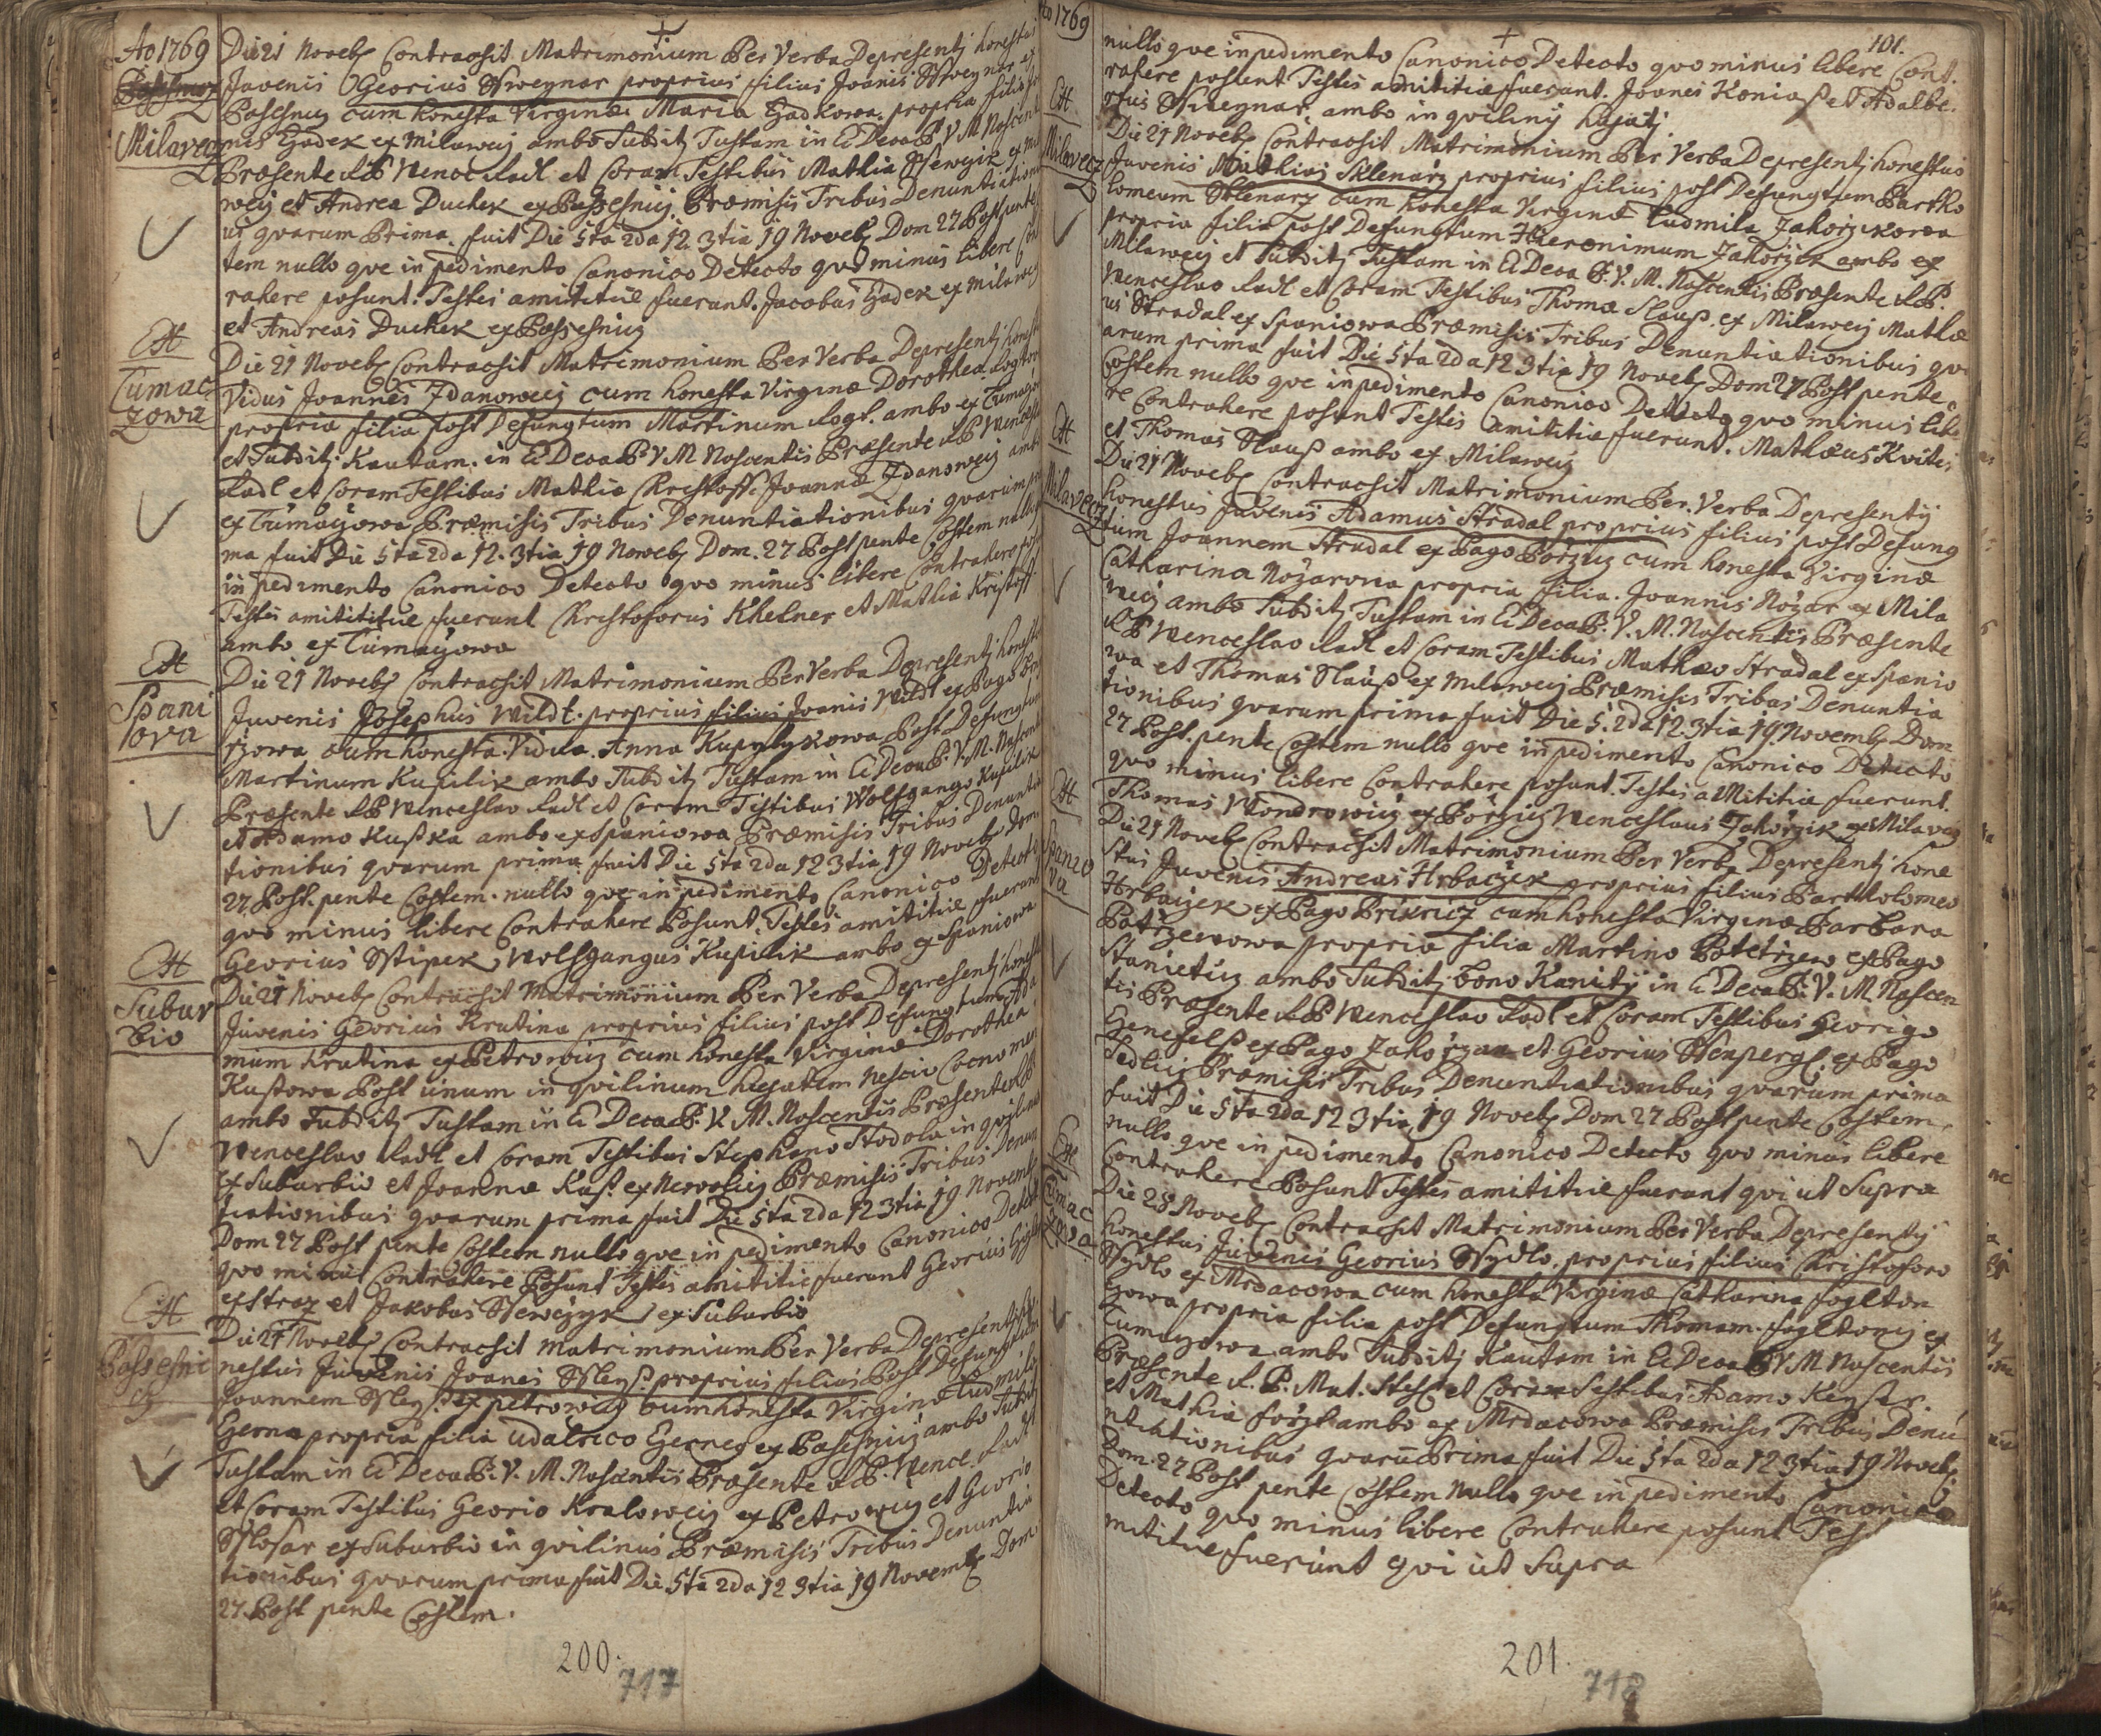 Ao 1769
Milavecz
Die 21 Noveb Contracsit Matrimonium Per Verba Depresentj honestus
Juvenis Georius Stweynar proprius filius Joanis Stweynar ex
Pasesnicz cum honesta Virginæ Maria Hadkowa propria filia
nis Hadek ex Milaweij ambo Subditj Tustam in Ec Decoa B V M Nascent
Præsente A P Wence Radl et Coram Testibus Mathia Ssewcyik ex Mi
weij et Andrea Duchek ex Passesnicz Præmisis Tribus Denuntiationi
us qvarum Prima fuit Die 5ta 2da 12 3tia 19 Noveb Dom 27 Post pente
tem nullo qve inpedimento Canonico Detecto qvo minus libere Con
rahere posunt. Testes amititiæ fuerunt. Jacobus Hadek ex Milaweij
et Andreas Duchek ex Passesnicz
Et
Tumac
zowa
Die 21 Noveb Contracsit Matrimonium Per Verba Depresentj hones
Vidus Joannes Zdanoweij cum honesta Virginæ Dorothea Logtow
propria filia post Defungtum Martinum Logt. ambo ex Tumaczo
et Subditj Kautam. in Ec Decoa B V M Nascentis Præsente A P Wencesl
Radl et Coram Testibus Mathia Christoff. Joannæ Zdanoweij ambo
ex Tumaczowa Præmisis Tribus Denuntiationibus qvarum pri
ma fuit Die 5ta 2da 12. 3tia 19 Noveb Dom. 27 Post pente Costem nullo
inpedimento Canonico Detecto qvo minus libere Contrahere pos
Testes amititiæ fuerunt Christoforus Khelner et Mathia Kristoff
ambo ex Tumaczowa
Et
Spani
lova
Die 21 Noveb Contracsit Matrimonium Per Verba Depresentj honestus
Juvenis Josephus Wildt. proprius filius Joanis Wildt ex Pago
rzowa cum honesta Vidua. Anna Kupylykowa Post Defungtum
Martinum Kupilik ambo Subditj Tustam in Ec Decoa B. V. M. Nascent
Præsente A P Wenceslao Radl et Coram Testibus Wolfgango Kupilik
et Adamo Kusska ambo ex Spaniowa Præmisis Tribus Denuntia
tionibus qvarum prima fuit Die 5ta 2da 12 3tia 19 Noveb Dom
27 Post. pente Costem. nullo qve inpedimento Canonico Detecto
qvo minus libere Contrahere Posunt. Testes amititiæ fuerunt
Georius Sstipek, Wolfgangus Kupilik ambo ex Spaniowa
Et
Subur
bio
Die 21 Noveb Contracsit Matrimonium Per Verba Depresentj honest
Juvenis Georius Krutina proprius filius post Defungtum Ada
mum Krutina ex Petrowicz cum honesta Virginæ Dorothea
Kustowa Post unum in qvilinum hujatem nescio Cocnomen
ambo Subditj Tustam in Ec Decoa B. V. M. Nascentis Præsente A P
Wenceslao Radl et Coram Testibus Stephano Stodola in qvilino
ex Suburbio et Joannæ Kass. ex Newolicz Præmisis Tribus Denun
tiationibus qvarum prima fuit Die 5ta 2da 12 3tia 19 Novemb
Dom 27 Post pente Costem nullo qve inpedimento Canonico Detect
qvo minus Contrahere Posunt Testes amititiæ fuerunt Georius
ex Straz et Jakobus Ssewczyk ex Suburbio
Et
Passesni
cz
Die 21 Noveb Contracsit matrimonium Per Verba Depresentj ho
nestus Juvenis Joanes Ssleyss proprius filius Post Defungtum
Joannem Ssleyss ex petrowicz cum honesta Virginæ Ludmila
Gerna propria filia Udalrico Gerneg ex Pasesnicz ambo Subditj
Tustam in Ec Decoa B. V. M. Nascentis Præsente A P. Wence. Radl
et Coram Testibus Georio Kraloweij ex Petrowicz et Georio
Sslosar ex Suburbio in qvilinus Præmisis Tribus Denuntia
tionibus qvarum prima fuit Die 5ta 2da 12 3tia 19 Novemb Dom
27. Post pente Costem.
200.
717
Ao 1769
101.
nullo qve inpedimento Canonico Detecto qvo minus libere Cont.
rahere posunt Testes amititiæ fuerunt. Joanes Koniass et Adalbe.
rtus Stweynar ambo in qviliny hujatj
Et
Milavecz
Die 21 Noveb Contracsit Matrimonium Per Verba Depresentj honestus
Juvenis Mathias Sklenarz proprius filius post Defungtum Bartho
lomeum Sklenarz cum honesta Virginæ Ludmila Jahorzikowa
propria filia post Defungtum Hieronimum Jahorzik ambo ex
Milaweij et Subditj Tustam in Ec Decoa B. V. M. Nascentis Præsente A P.
Wenceslao Radl et Coram Testibus Thomæ Slauss. ex Milaweij Mathæ
us Stradal ex Spaniowa Præmisis Tribus Denuntiationibus qv
arum prima fuit Die 5ta 2da 12 3tia 19 Noveb Dom 27 Post pente
Costem nullo qve inpedimento Canonico Detecto qvo minus libe
re Contrahere posunt Testes amititiæ fuerunt. Mathæus Kvites
et Thomas Slauss ambo ex Milaweij
Et
Milavecz
Die 21 Noveb Contracsit Matrimonium Per. Verba Depresentij
honestus Juvenis Adamus Stradal proprius filius post Defung
tum Joannem Stradal ex Pago Porziz cum honesta Virginæ
Catharina Nozarowa propria filia. Joannis Nozar ex Mila
weij ambo Subditj Tustam in Ec Decoa B. V. M. Nascentis Præsente
A P Wenceslao Radl et Coram Testibus Mathæo Stradal ex Spanio
wa et Thomas Slauss ex Milaweij Præmisis Tribus Denuntia
tionibus qvarum prima fuit Die 5. 2da 12. 3tia 19. Novemb Dom
27 Post. pente Costem nullo qve inpedimento Canonico Detecto
qvo minus libere Contrahere posunt. Testes amititiæ fuerunt.
Thomas Wondrowicz ex Porziz Wenceslaus Jahorzik ex Milavecz
Et
Spanio
va
Die 21 Noveb Contracsit Matrimonium Per Verba Depresentj hone
stus Juvenis Andreas Hrbaczek proprius filius Bartholomeo
Hrbaczek ex Pago Prikricz cum honesta Virginæ Barbara
Potrzewowa propria filia Martino Potetrzew ex Pago
Stanieticz ambo Subditj bono Kanitij in Ec Decoa B. V. M. Nascen
tis Præsente A P Wenceslao Radl et Coram Testibus Georigo
Genefelss ex Pago Zahorzan et Georius Stenpergl. ex Pago
Sedlicz Præmisis Tribus Denuntiationibus qvarum prima
fuit Die 5ta 2da 12 3tia 19 Noveb Dom 27 Post pente Costem
nullo qve inpedimento Canonico Detecto qvo minus libere
Contrahere Posunt Testes amititiæ fuerunt qvi ut Supra
Et
Tumac
zova
Die 28 Noveb Contracsit Matrimonium Per Verba Depresentij
honestus Juvenis Georius Ssydlo. proprius filius Christoforo
Ssydlo ex Mrdacowa cum honesta Virginæ Catharina foglton
zowa propria filia post Defungtum Thomam. fogltonij ex
Tumaczowa ambo Subditj Kautam in Ec Decoa B V. M Nascentis
Præsente A. P. Mat. Stess et Coram Testibus Adamo Keysser
et Mathia forst ambo ex Mrdacowa Præmisis Tribus Denu
ntiationibus qvaru Prima fuit Die 5ta 2da 12 3tia 19 Noveb
Dom. 27 Post pente Costem nullo qve inpedimento Canonico
Detecto qvo minus libere Contrahere posunt Tes
mititiæ fuerunt qvi ut Supra
201.
718